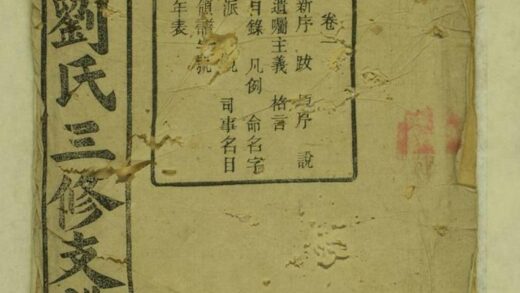 劉氏三修支
卷一
新序 跋 序 說
遺囑主義 格言
目錄 凡例 命名字
派 司事名目
領譜 號
年表